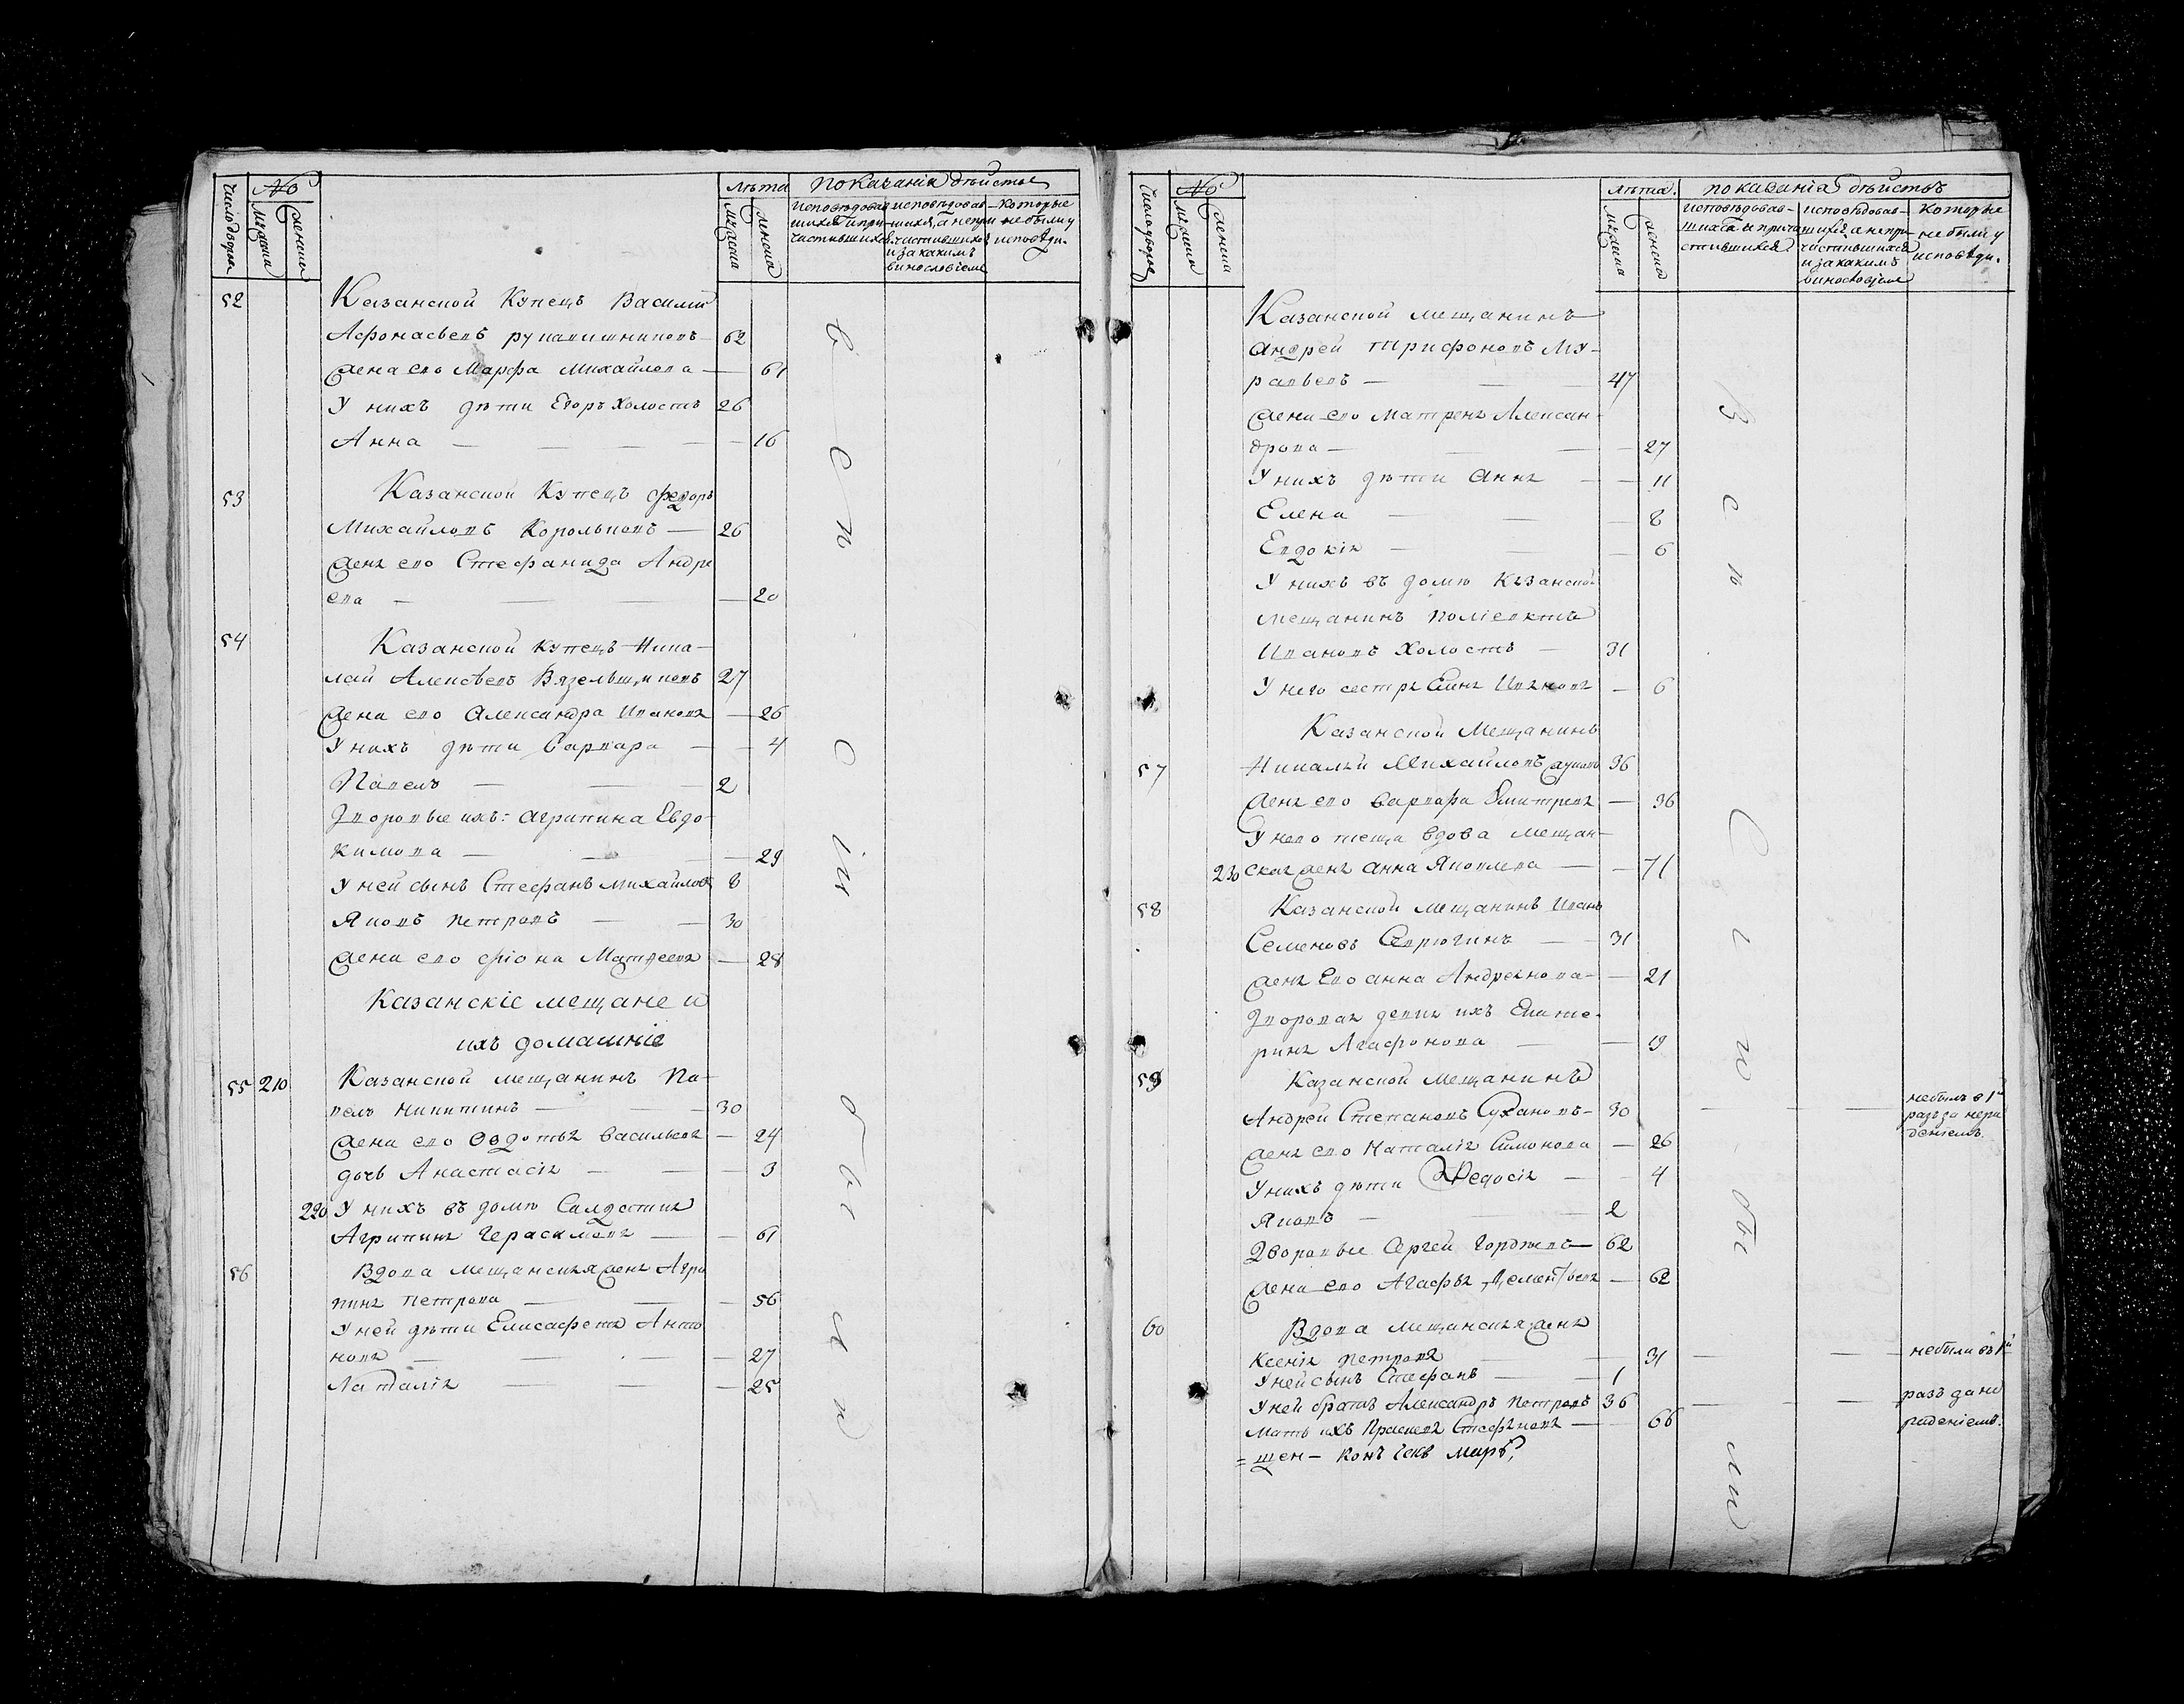 Число дворовъ
№
мужеска
женска
лѣта
мужеска
женска
показаніи дѣйства
исповѣдовав
шихся и при
частившихся
исповѣдовав–
шихся, а непри
частившихся
и за какимъ
винословіемъ
Которые
не были у
исповѣди.
52 Казанской Купецъ Василій
Афонасьевъ рукавишниковъ 62
жена его Марфа Михайлова — 61
У нихъ дѣти Егоръ холостъ 26
Анна — 16
53 Казанской Купецъ Федоръ
Михайловъ Корольковъ — 26
жена его Стефанида Андре
ева — 20
54 Казанской купецъ Нико–
лай Алексѣевъ Вязельщиковъ 27
жена его Александра Иванова — 26
У нихъ дѣти Варвара — 4
Павелъ — 2
Дворовые ихъ: агрипина Евдо–
кимова — 29
У ней сынъ Стефанъ михайловъ 8
Яковъ петровъ — 30
жена его фіона Матвеева — 28
Казанскіе мещане и
ихъ домашніе
55 210 Казанской мещанинъ Па–
велъ никитинъ — 30
жена его Овдотья васильева — 24
дочь Анастасія — 3
220 У нихъ въ домѣ Салдатка
Агрипина Герасимова — 61
56 Вдова мещанская жена Агри
пина петрова — 56
У ней дѣти Елисафета Анто
нова — 27
Наталія — 25
всп
о
ів
о
бы
я
Число дворовъ
№
мужеска
женска
лѣта.
мужеска
женска
показаніи дѣйствъ
исповѣдовав–
шихся и прича
стившихся
исповѣдовав–
шихся, а непри–
частившихся
и за какимъ
винословіемъ
Которые
не были у
исповѣди.
Казанской мещанинъ
андрей трифоновъ Му–
равьевъ — 47
жена его матрена Алексан–
дрова — 27
У нихъ дѣти анна — 11
Елена — 8
Евдокія — 6
У нихъ въ домѣ Казанской
мещанинъ
Ивановъ холостъ — 31
У него сестра Иванова — 6
Казанской Мещанинъ
57 Николай Михайловъ 36
жена его варвара Дмитрева — 36
У него теща вдова мещан–
230 ская жена анна Яковлева — 71
58 Казанской мещанинъ Иванъ
Семеновъ Севрюгинъ — 31
жена Его анна Андреянова — 21
Дворовая девка ихъ Екате–
рина Агафонова — 19
59 Казанской мещанинъ
Андрей Степановъ Сухановъ — 30 — — небылъ в 1й
разъ за нера
деніемъ.
жена его Наталія Симонова — 26
У нихъ дѣти Федосія — 4
Яковъ — 2
Дворовые Сергей Гордѣевъ — 62
жена его Агафья Дементьева — 62
60 Вдова мещанская жена
Ксенія петрова — 31 — — небыли въ 1й
У ней сынъ Стефанъ — 1
У ней братъ Александръ петровъ 36 — — разъ за не
Мать ихъ Прасковья Стефанова — 66 радѣніемъ.
= щен–